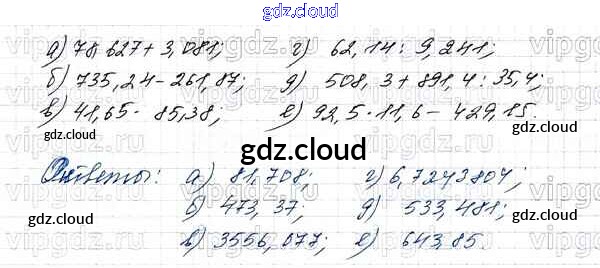 gdz.cloud
а) 78,627 + 3,081; г) 62,14 : 9,241;
б) 735,24 - 261,87; д) 508,3 + 891,4 : 35,4;
в) 41,65 · 85,38; е) 92,5 · 11,6 - 429,15.
gdz.cloud gdz.cloud
gdz.cloud
Ответы: а) 81,708; г) 6,7243804;
б) 473,37; д) 533,481;
gdz.cloud gdz.cloud
в) 3556,077; е) 643,85.
vipgdz.cloud